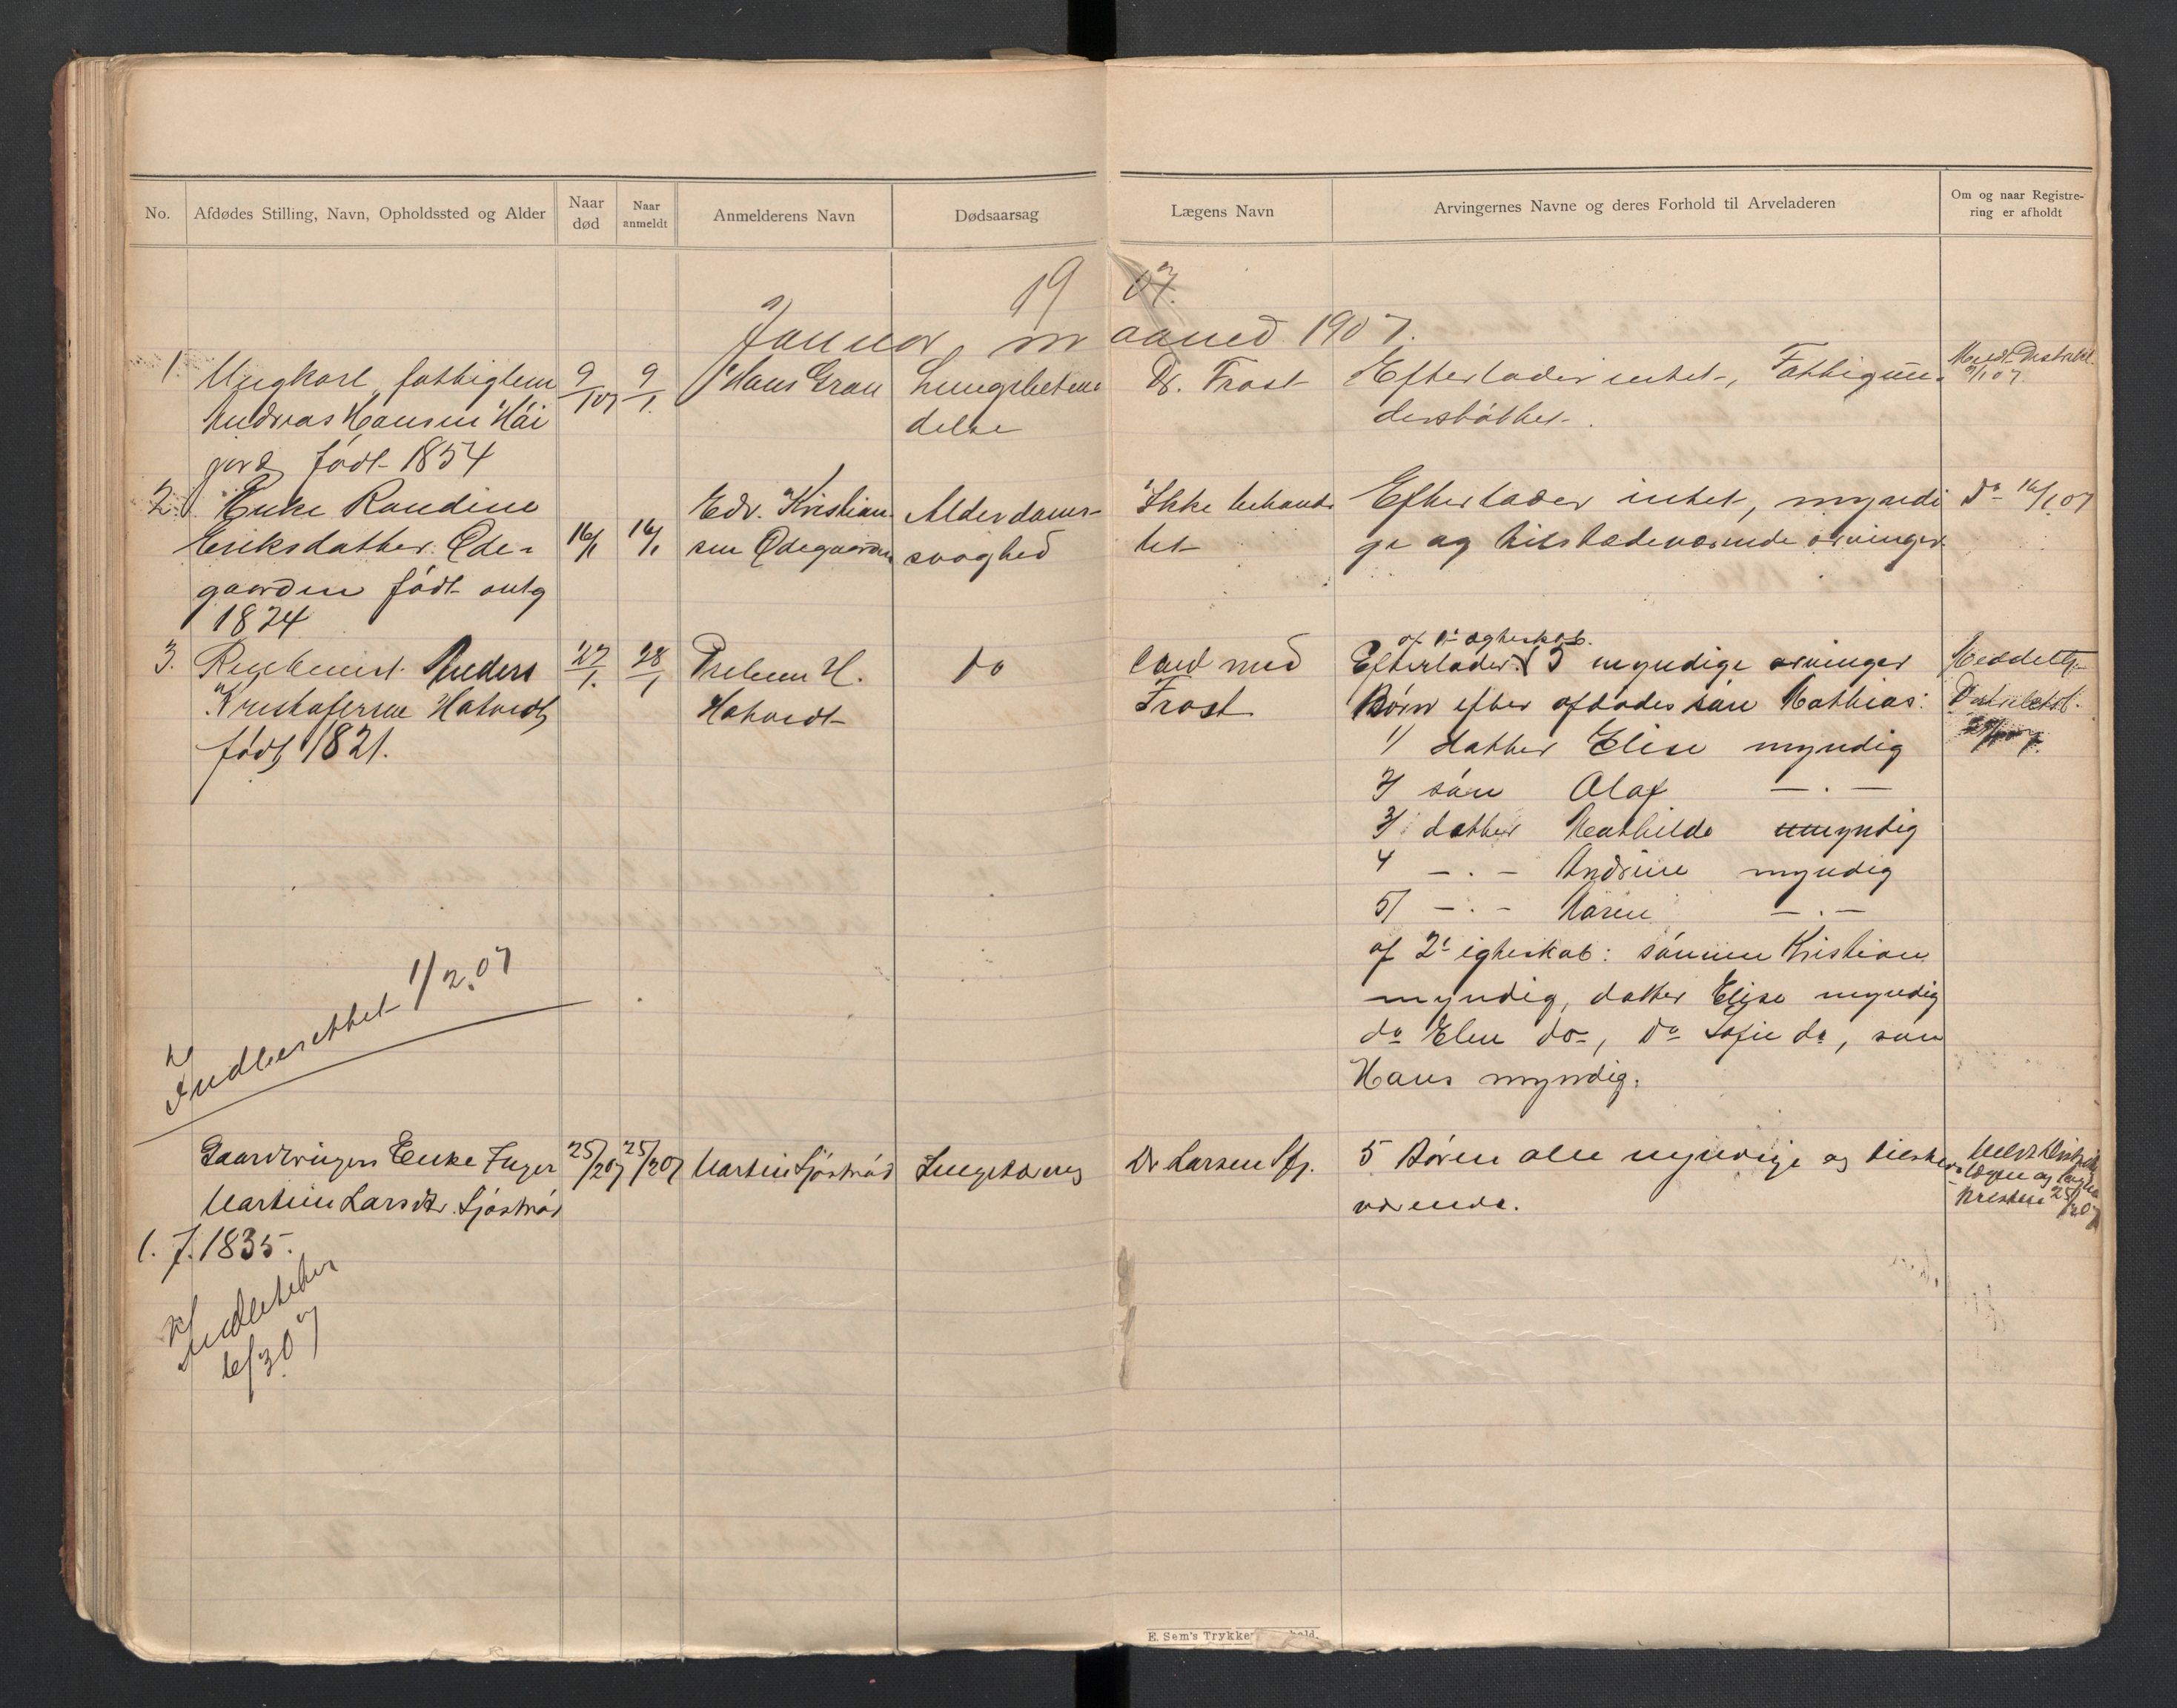 No.
Afdødes Stilling, Navn, Opholdssted og Alder
Naar død
Naar anmeldt
Anmelderens Navn
Dødsaarsag
Lægens Navn
Arvingernes Navne og deres Forhold til Arveladeren
Om og naar Registre-
ring er afholdt
19 07.
Januar maaned 1907.
1. Ungkarl, fattiglem
Andreas Hansen Höi
jord född 1854
9/1 07
9/1.
Hans Grau
Lungebeten
delse
Dr. Frost
Efterlader intet, Fattigun-
derstøttet.
Medt. Distrikl.
9/1 07.
2. Enke Randine
Eriksdatter Öde-
gaarden født antg
1824
16/1
16/1
Edv. Kristian
sen Ødegaarden
Alderdoms-
svaghed
Ikke behand-
let
Efterlader intet, myndi
ge og tilstedeværende arvinger.
Do 16/1 07
3. Anders
Kristofersen Hotvedt,
født 1821.
27/1.
28/1
Preben H.
Hotvedt
do
cand med
Frost
af 1ste egteskab.
Efterlader 5 myndige arvinger
Børn efter afdødes søn Mathias:
1/ datter Elise myndig
2/ søn Olaf — . —
3/ datter Mathilde umyndig
4 — . — Andrine myndig
5/ — . — Maren — . —
af 2det egteskab: sønnen Kristian
myndig, datter Elise myndig
do Elen do, do Sofie do, søn
Hans myndig.
Meddelt
Indberettet 1/2.07
Gaardbrugers Enke Inger
Martine Larsdtr. Sjøstrød
1. f. 1835.
25/2 07
25/2 07
Martin Sjøstrød
Lungebetend
Dr Larsen Sfj.
5 Børn alle myndige og tilstede-
værende.
25/2 07
Indberettet
6/3 07
E. Sem's Trykkeri